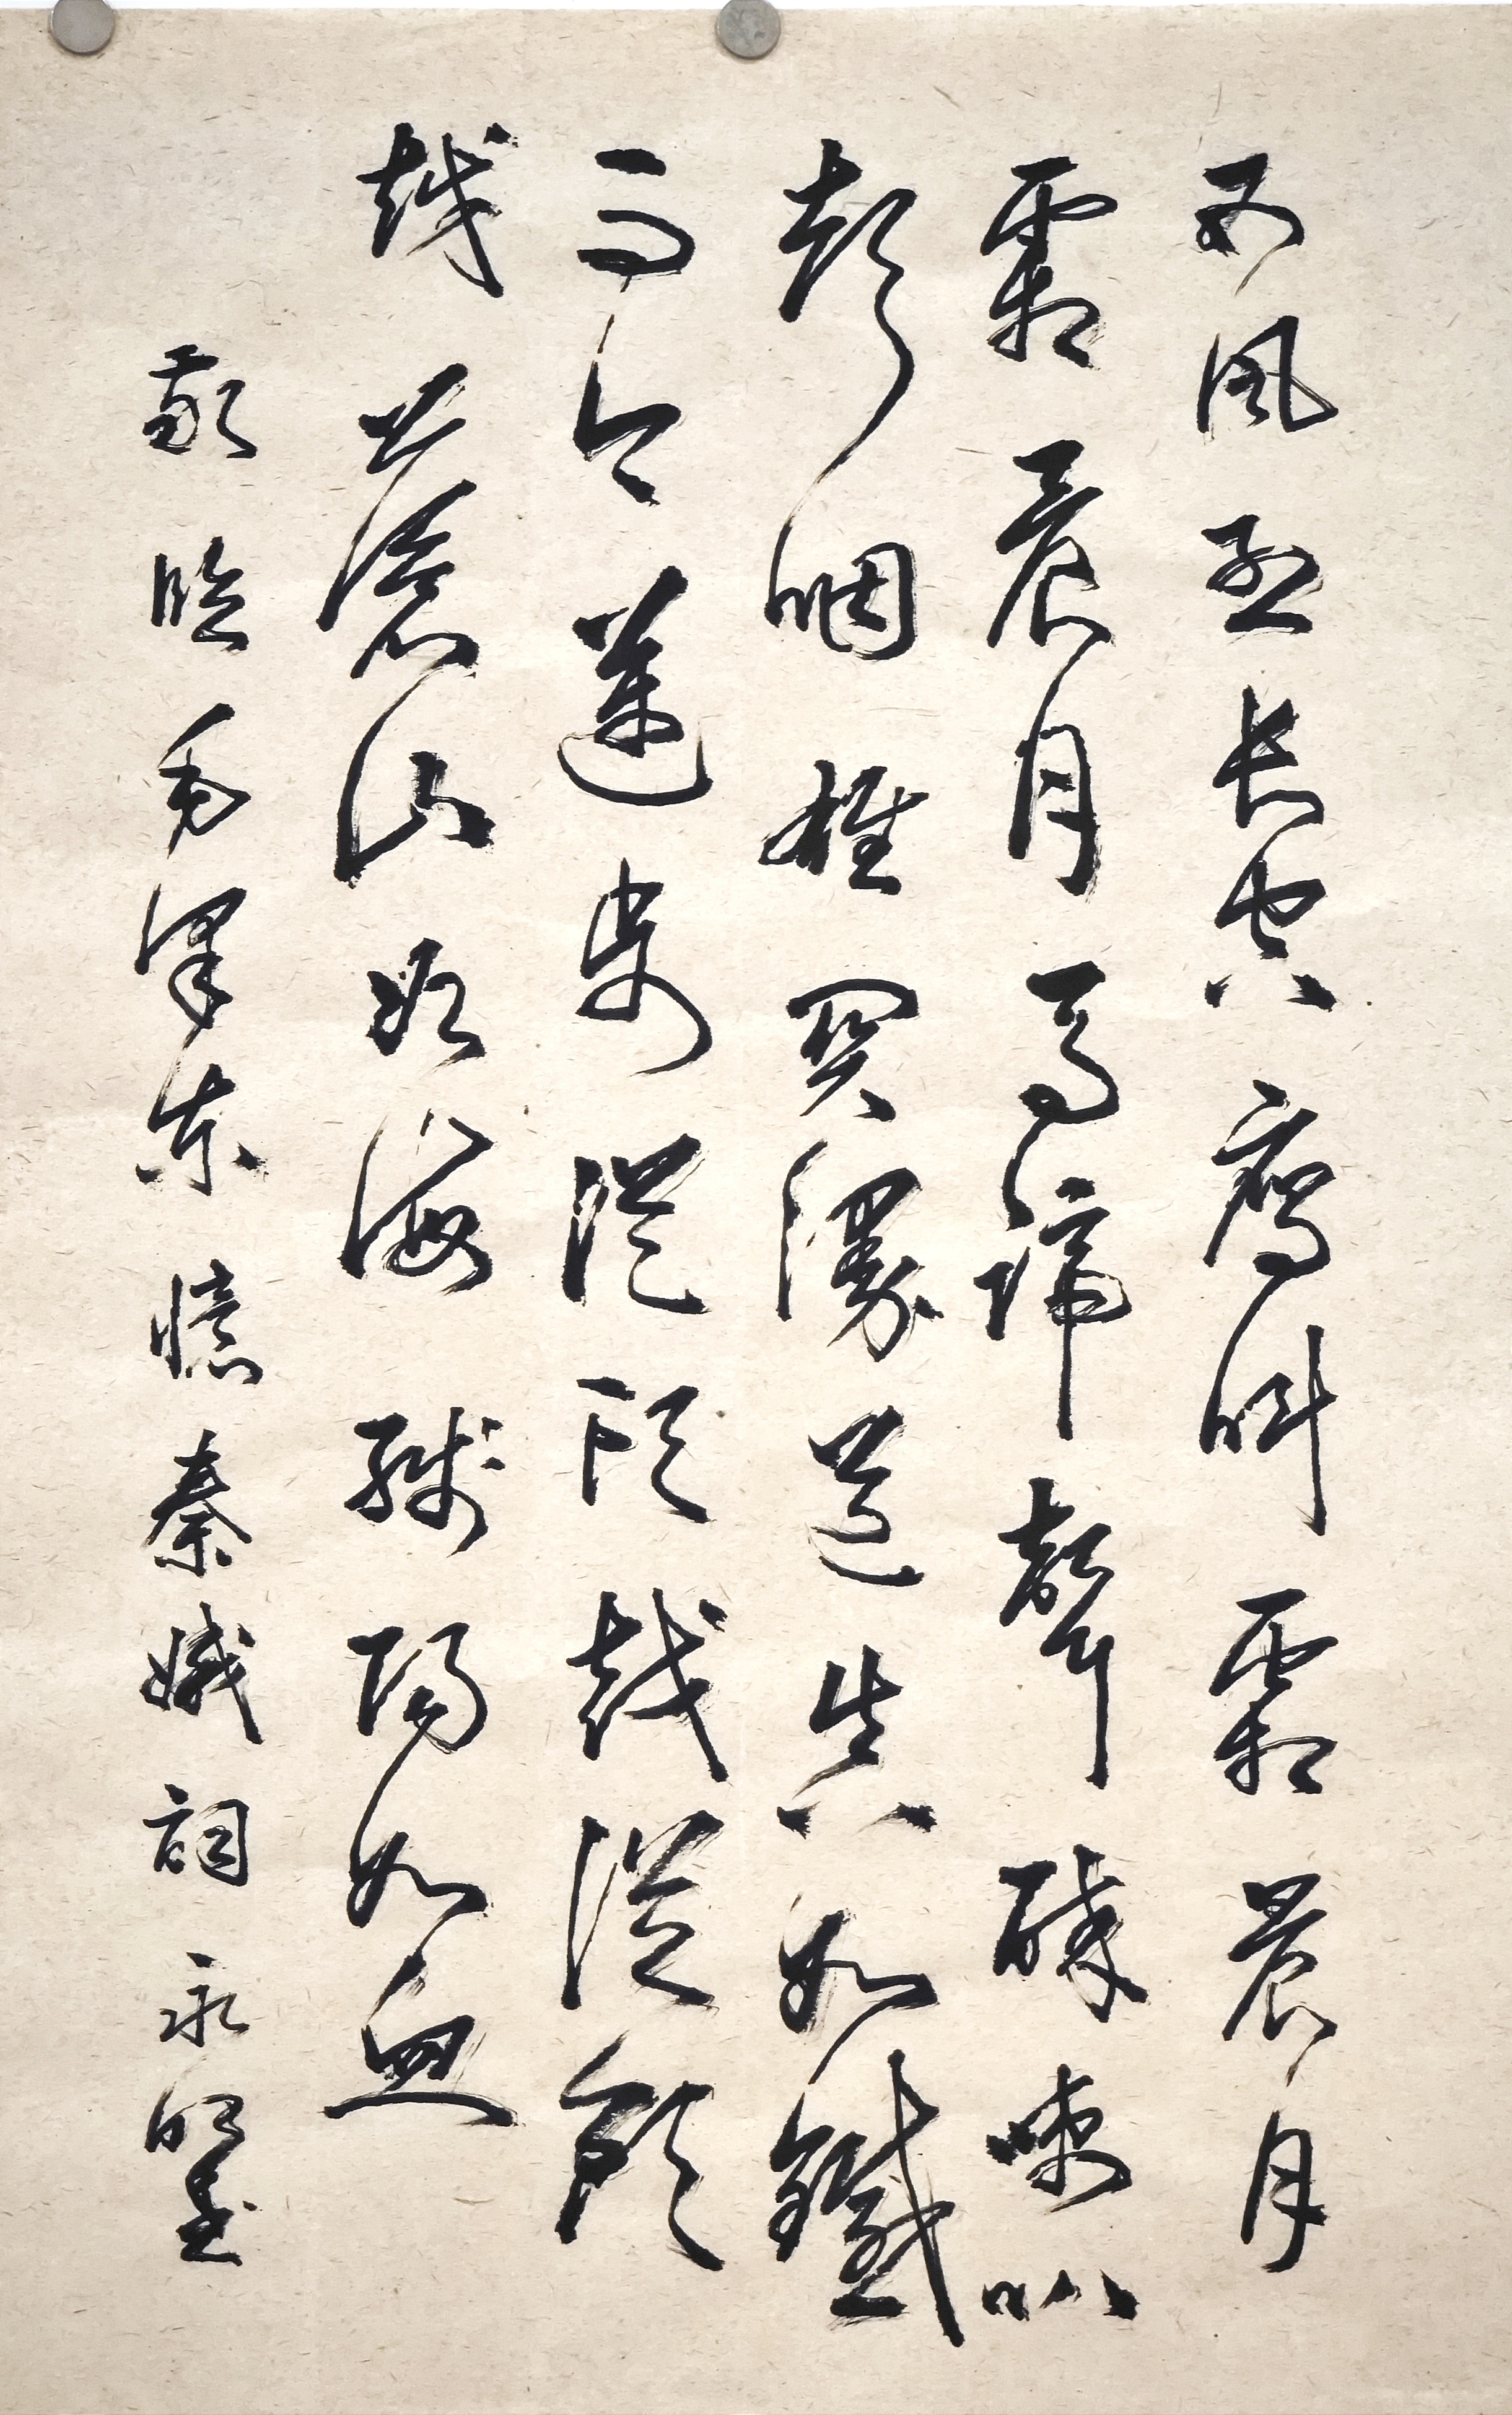 西風烈長空雁叫霜晨月
霜晨月馬蹄聲碎喇叭
聲咽雄關漫道真如鐵
而今邁步從頭越從頭
越蒼山如海殘陽如血
敬臨毛澤東憶秦娥詞永